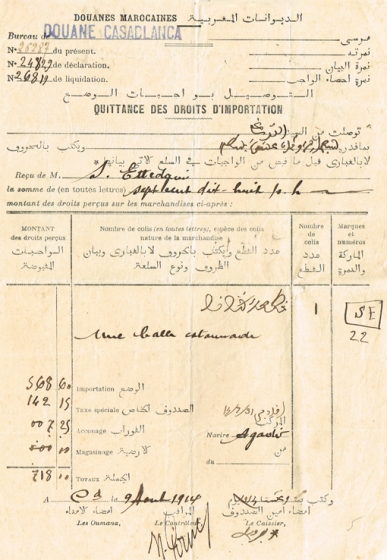 DOUANES MAROCAINES الديوانات المغربية
Bureau de DOUANE CASABLANCA مرسى
Nº du présent. نمرته
Nº 24829 de déclaration. نمرة البيان
Nº 26819 de liquidation. نمرة احصاء الواجب
التوصيل بواجبات الوضع
QUITTANCE DES DROITS D'IMPORTATION
توصلت من السيد
ما قدره ويكتب بالحروف
لا بالغباري قبل ما قبض من الواجبات في السلع لآتي بيانها
Reçu de M. S. Ettedgui
la somme de (en toutes lettres) sept cent dix huit p. h
montant des droits perçus sur les marchandises ci-après :
MONTANT des droits perçus الواجبات المقبوضة
Nombre de colis (en toutes lettres), espèce des colis nature de la marchandise
عدد القطع ويكتب بالحروف لا بالغباري وبيان الظروف ونوع السلعة
Nombre de colis عدد القطع
Marques et numéros الماركة والنمرة
1 SE
Une balle cotonnade 22
568 60 Importation الوضع
142 15 Taxe spéciale الصندوق الخاص
007 25 Aconage الفوارب Navire Agadir
Magasinage من
du
718 10 TOTAUX الجملة
A Ca le 9 Aout 1914
امضاء لامناء المراقب امضاء امين الصندوق
Les Oumana, Le Contrôleur, Le Caissier,